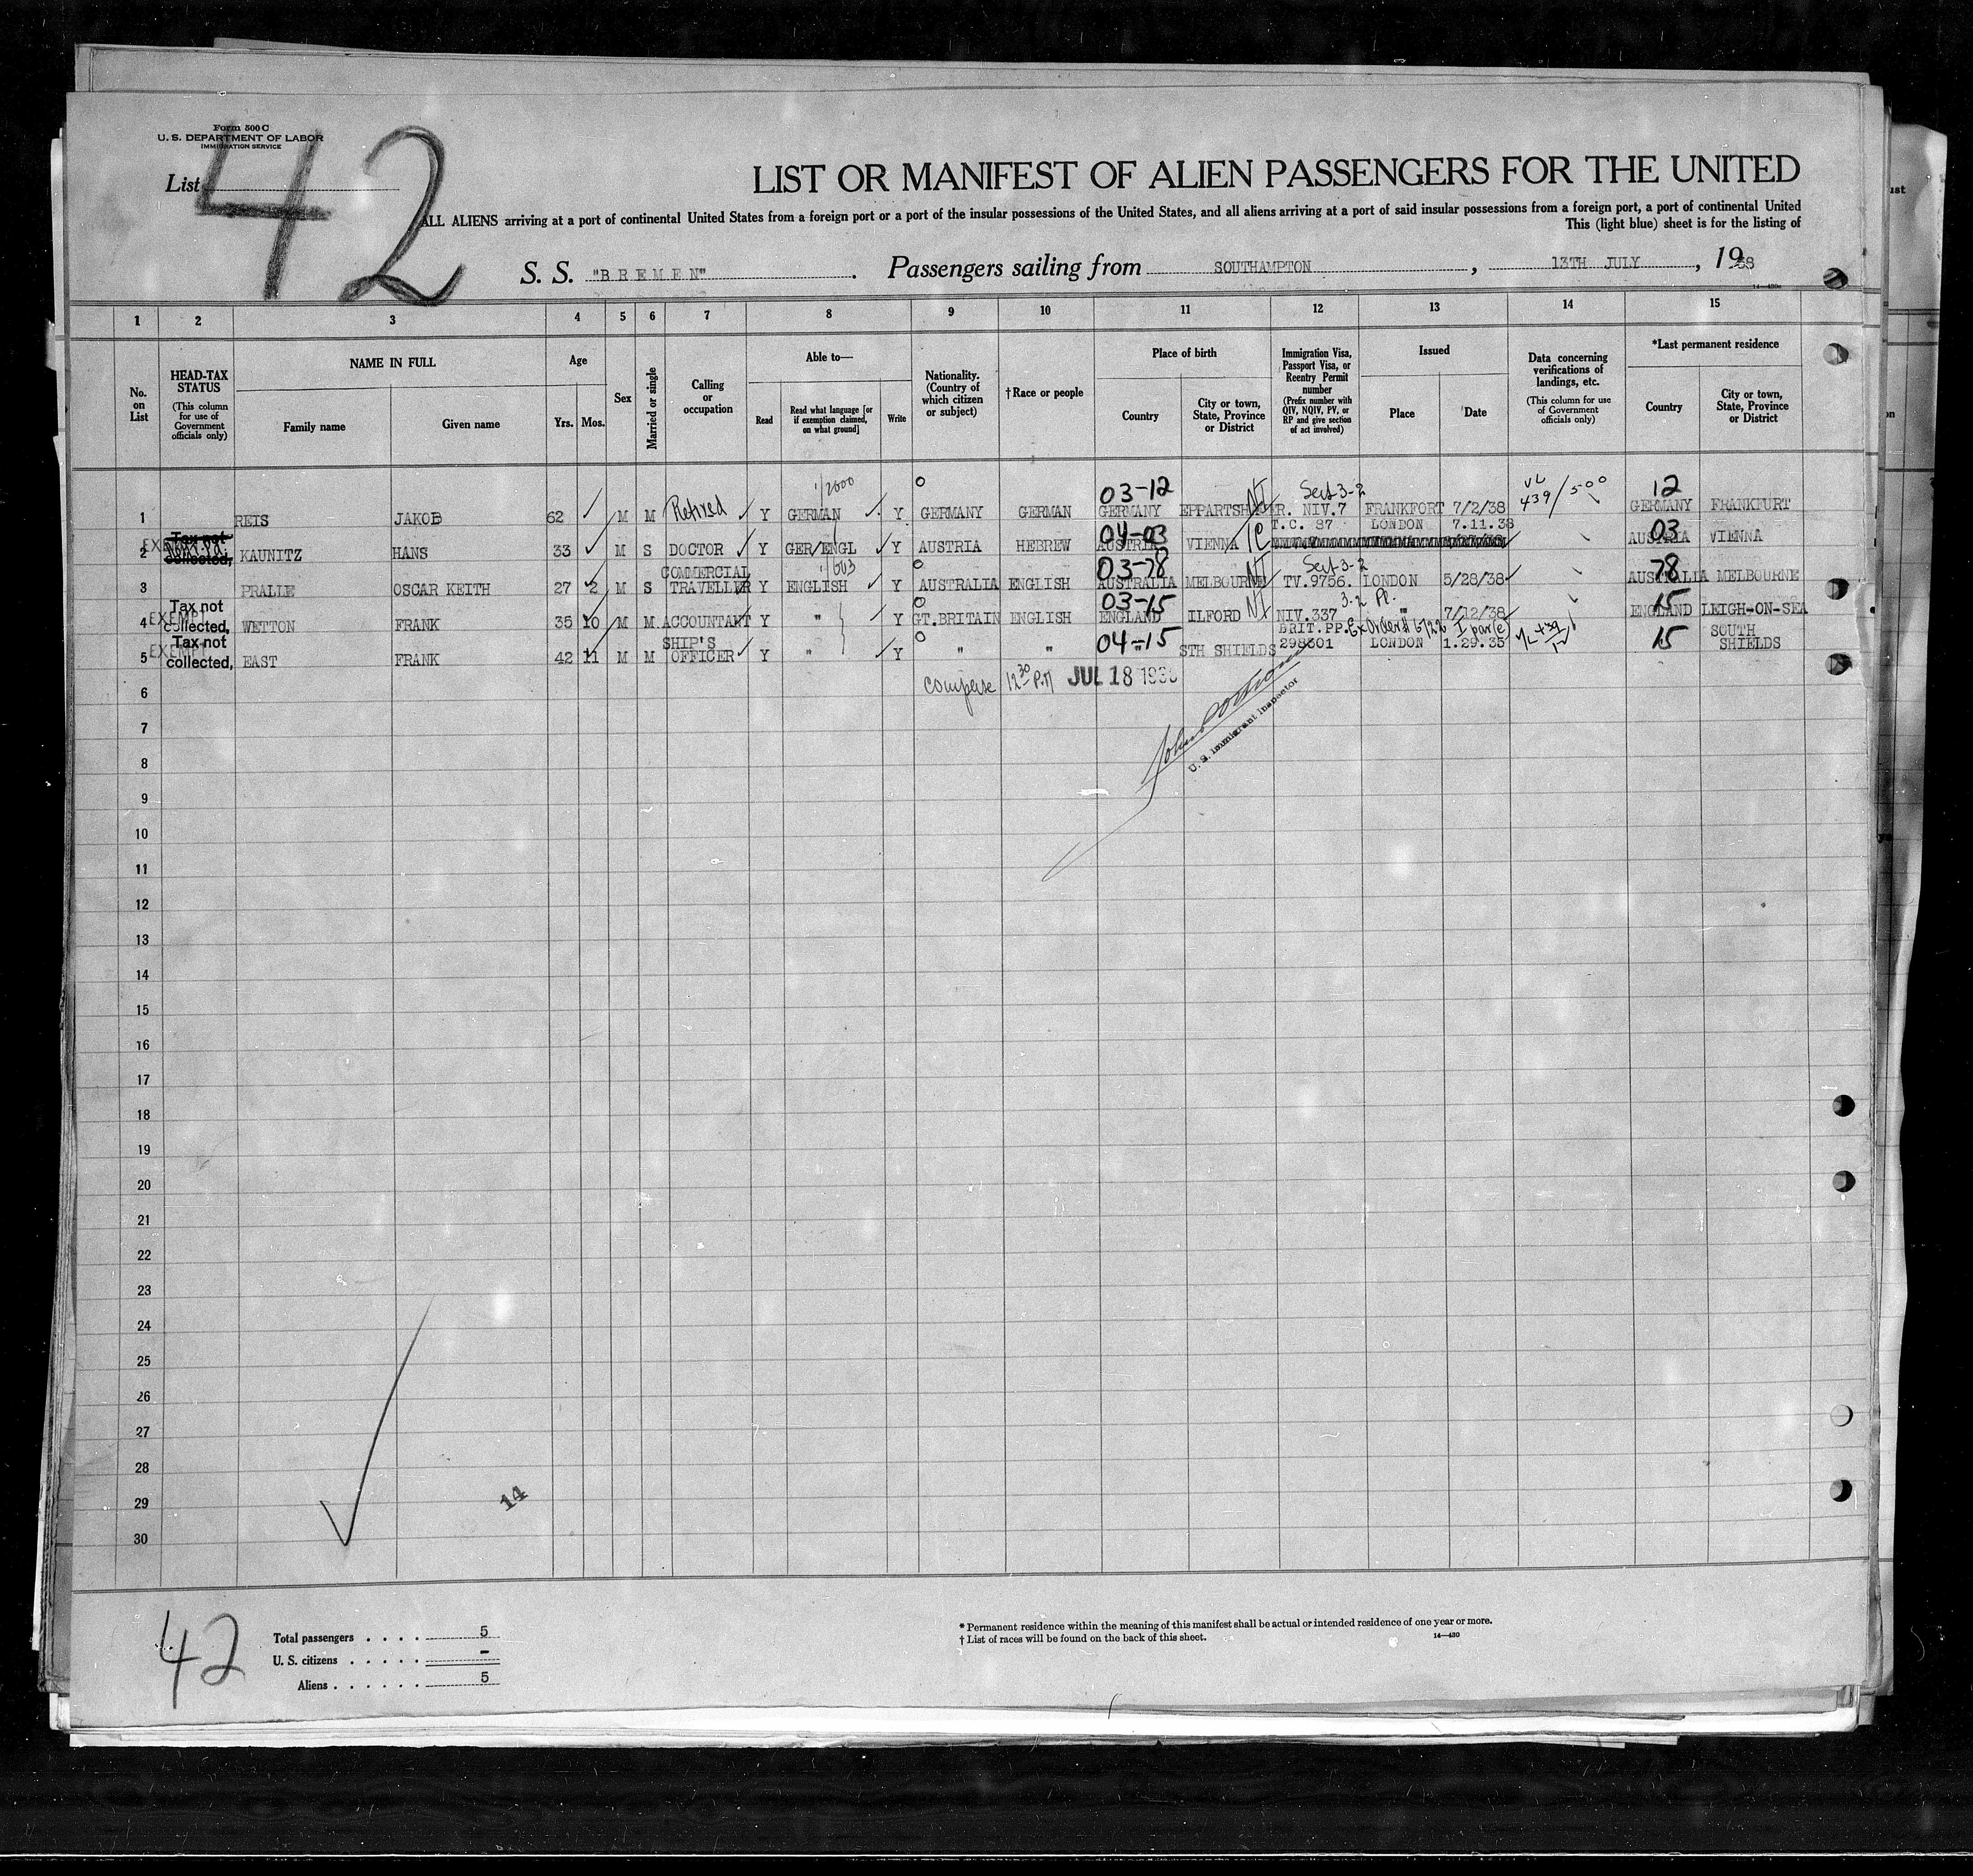 Form 500 C
U. S. DEPARTMENT OF LABOR
IMMIGRATION SERVICE
List 42
LIST OR MANIFEST OF ALIEN PASSENGERS FOR THE UNITED
ALL ALIENS arriving at a port of continental United States from a foreign port or a port of the insular possessions of the United States, and all aliens arriving at a port of said insular possessions from a foreign port, a port of continental United
This (light blue) sheet is for the listing of
S. S. "BREMEN". Passengers sailing from SOUTHAMPTON, 13TH JULY, 1938
1 2 3 4 5 6 7 8 9 10 11 12 13 14 15
No. on List
HEAD-TAX STATUS (This column for use of Government officials only)
NAME IN FULL Family name Given name
Age Yrs. Mos.
Sex
Married or single
Calling or occupation
Able to— Read Read what language [or if exemption claimed, on what ground] Write
Nationality. (Country of which citizen or subject)
† Race or people
Place of birth Country City or town, State, Province or District
Immigration Visa, Passport Visa, or Reentry Permit number (Prefix number with QIV, NQIV, PV, or RP and give section of act involved)
Issued Place Date
Data concerning verifications of landings, etc. (This column for use of Government officials only)
*Last permanent residence Country City or town, State, Province or District
03-12 Sect 3-2 439/500 12
1 REIS JAKOB 62 M M Retired Y GERMAN Y GERMANY GERMAN GERMANY R. NIV.7 FRANKFORT 7/2/38 GERMANY FRANKFURT
04-03 T.C. 87 LONDON 7.11.38 03
2 Tax not collected, KAUNITZ HANS 33 M S DOCTOR Y GER/ENGL Y AUSTRIA HEBREW AUSTRIA VIENNA AUSTRIA VIENNA
03-78 Sect 3-2 78
3 PRALLE OSCAR KEITH 27 2 M S COMMERCIAL TRAVELLER Y ENGLISH Y AUSTRALIA ENGLISH AUSTRALIA MELBOURNE TV.9756. LONDON 5/28/38 AUSTRALIA MELBOURNE
03-15 3-2 15
4 EXEMPT Tax not collected, WETTON FRANK 35 10 M M ACCOUNTANT Y " Y GT.BRITAIN ENGLISH ENGLAND ILFORD NIV.337 " 7/12/38 ENGLAND LEIGH-ON-SEA
04-15 15
5 EXEMPT Tax not collected, EAST FRANK 42 11 M M SHIP'S OFFICER Y " Y " " " STH SHIELDS BRIT.PP. 298301 LONDON 1.29.35 SOUTH SHIELDS
6 12 30 P.M JUL 18 1938
7
U. S. Immigrant Inspector
8
9
10
11
12
13
14
15
16
17
18
19
20
21
22
23
24
25
26
27
28
29 14
30
42
Total passengers . . . . 5
U. S. citizens . . . . . -
Aliens . . . . . . 5
* Permanent residence within the meaning of this manifest shall be actual or intended residence of one year or more.
† List of races will be found on the back of this sheet. 14—430